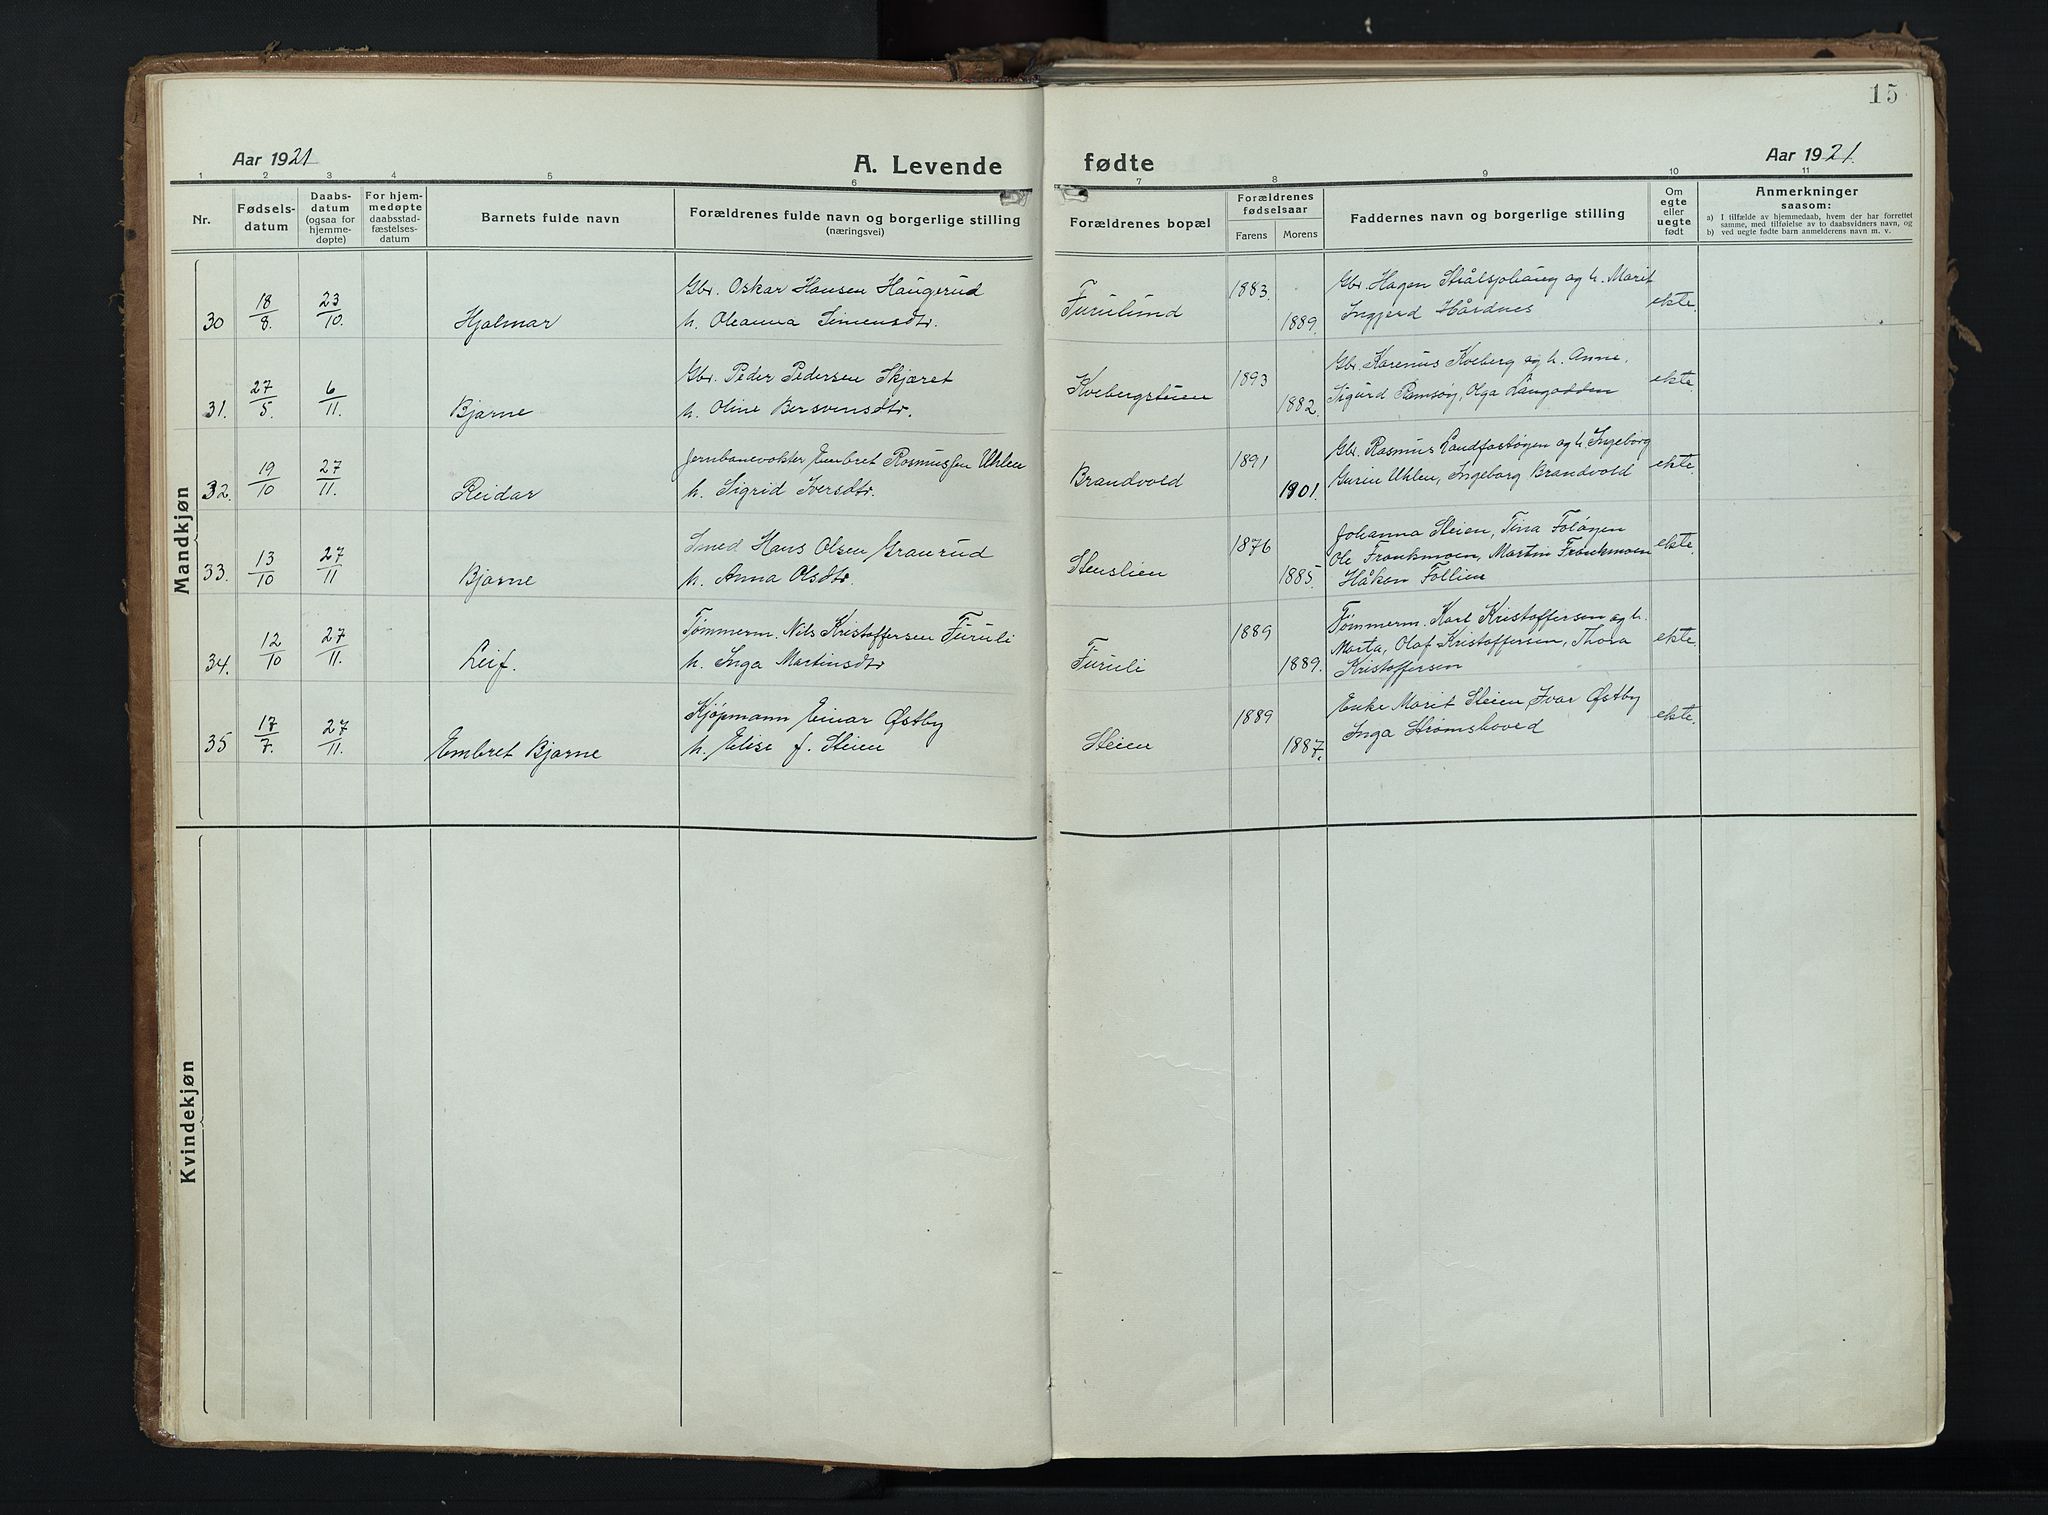 15
Aar 1921
A. Levende
fødte
Aar 1921.
1 2 3 4 5 6 7 8 9 10 11
Nr.
Fødsels-
datum
Daabs-
datum
(ogsaa for
hjemme-
døpte)
For hjem-
medøpte
daabsstad-
fæstelses-
datum
Barnets fulde navn
Forældrenes fulde navn og borgerlige stilling
(næringsvei)
Forældrenes bopæl
Forældrenes
fødselsaar
Farens
Morens
Faddernes navn og borgerlige stilling
Om
egte
eller
uegte
født
Anmerkninger
saasom:
a) I tilfælde av hjemmedaab, hvem der har forrettet
samme, med tilføielse av to daabsvidners navn, og
b) ved uegte fødte barn anmelderens navn m. v.
Mandkjøn
30 18/8. 23/10. Hjalmar
Gbr. Oskar Hansen Haugerud
h. Oleanna Simensdtr.
Furulund 1883. 1889.
Gbr. Hagen Strålsjøhaug og h. Marit
Ingjerd Hårdnes
ekte.
31. 27/5. 6/11. Bjarne
Gbr. Peder Pedersen Skjæret
h. Oline Bersvensdtr.
Kvebergstuen 1893 1882.
Gbr. Karenus Kveberg og h. Anne,
Sigurd Ramsøy, Olga Langodden
ekte.
32. 19/10 27/11. Reidar
Jernbanevokter Embret Rasmussen Uhlen
h. Sigrid Iversdtr.
Brandvold 1891 1901.
Gbr. Rasmus Randfastøyen og h. Ingeborg
Gurin Uhlen, Ingeborg Brandvold
ekte.
33. 13/10 27/11 Bjarne
Smed Hans Olsen Graurud
h. Anna Olsdtr.
Stenslien 1876 1885.
Johanna Steien, Tina Foløyen
Ole Frankmoen, Martin Frankmoen
Håken Follien
ekte.
34. 12/10 27/11. Leif.
Tømmerm. Nils Kristoffersen Furuli
h. Inga Martinsdtr
Furuli 1889 1889.
Tømmerm. Karl Kristoffersen og h.
Marta, Olaf Kristoffersen, Thora
Kristoffersen
ekte.
35 17/7. 27/11. Embret Bjarne
Kjøpmann Einar Østby
h. Elise f. Steien
Steien 1889 1887.
Enke Marit Steien, Ivar Østby
Inga Strømshoved
ekte.
Kvindekjøn